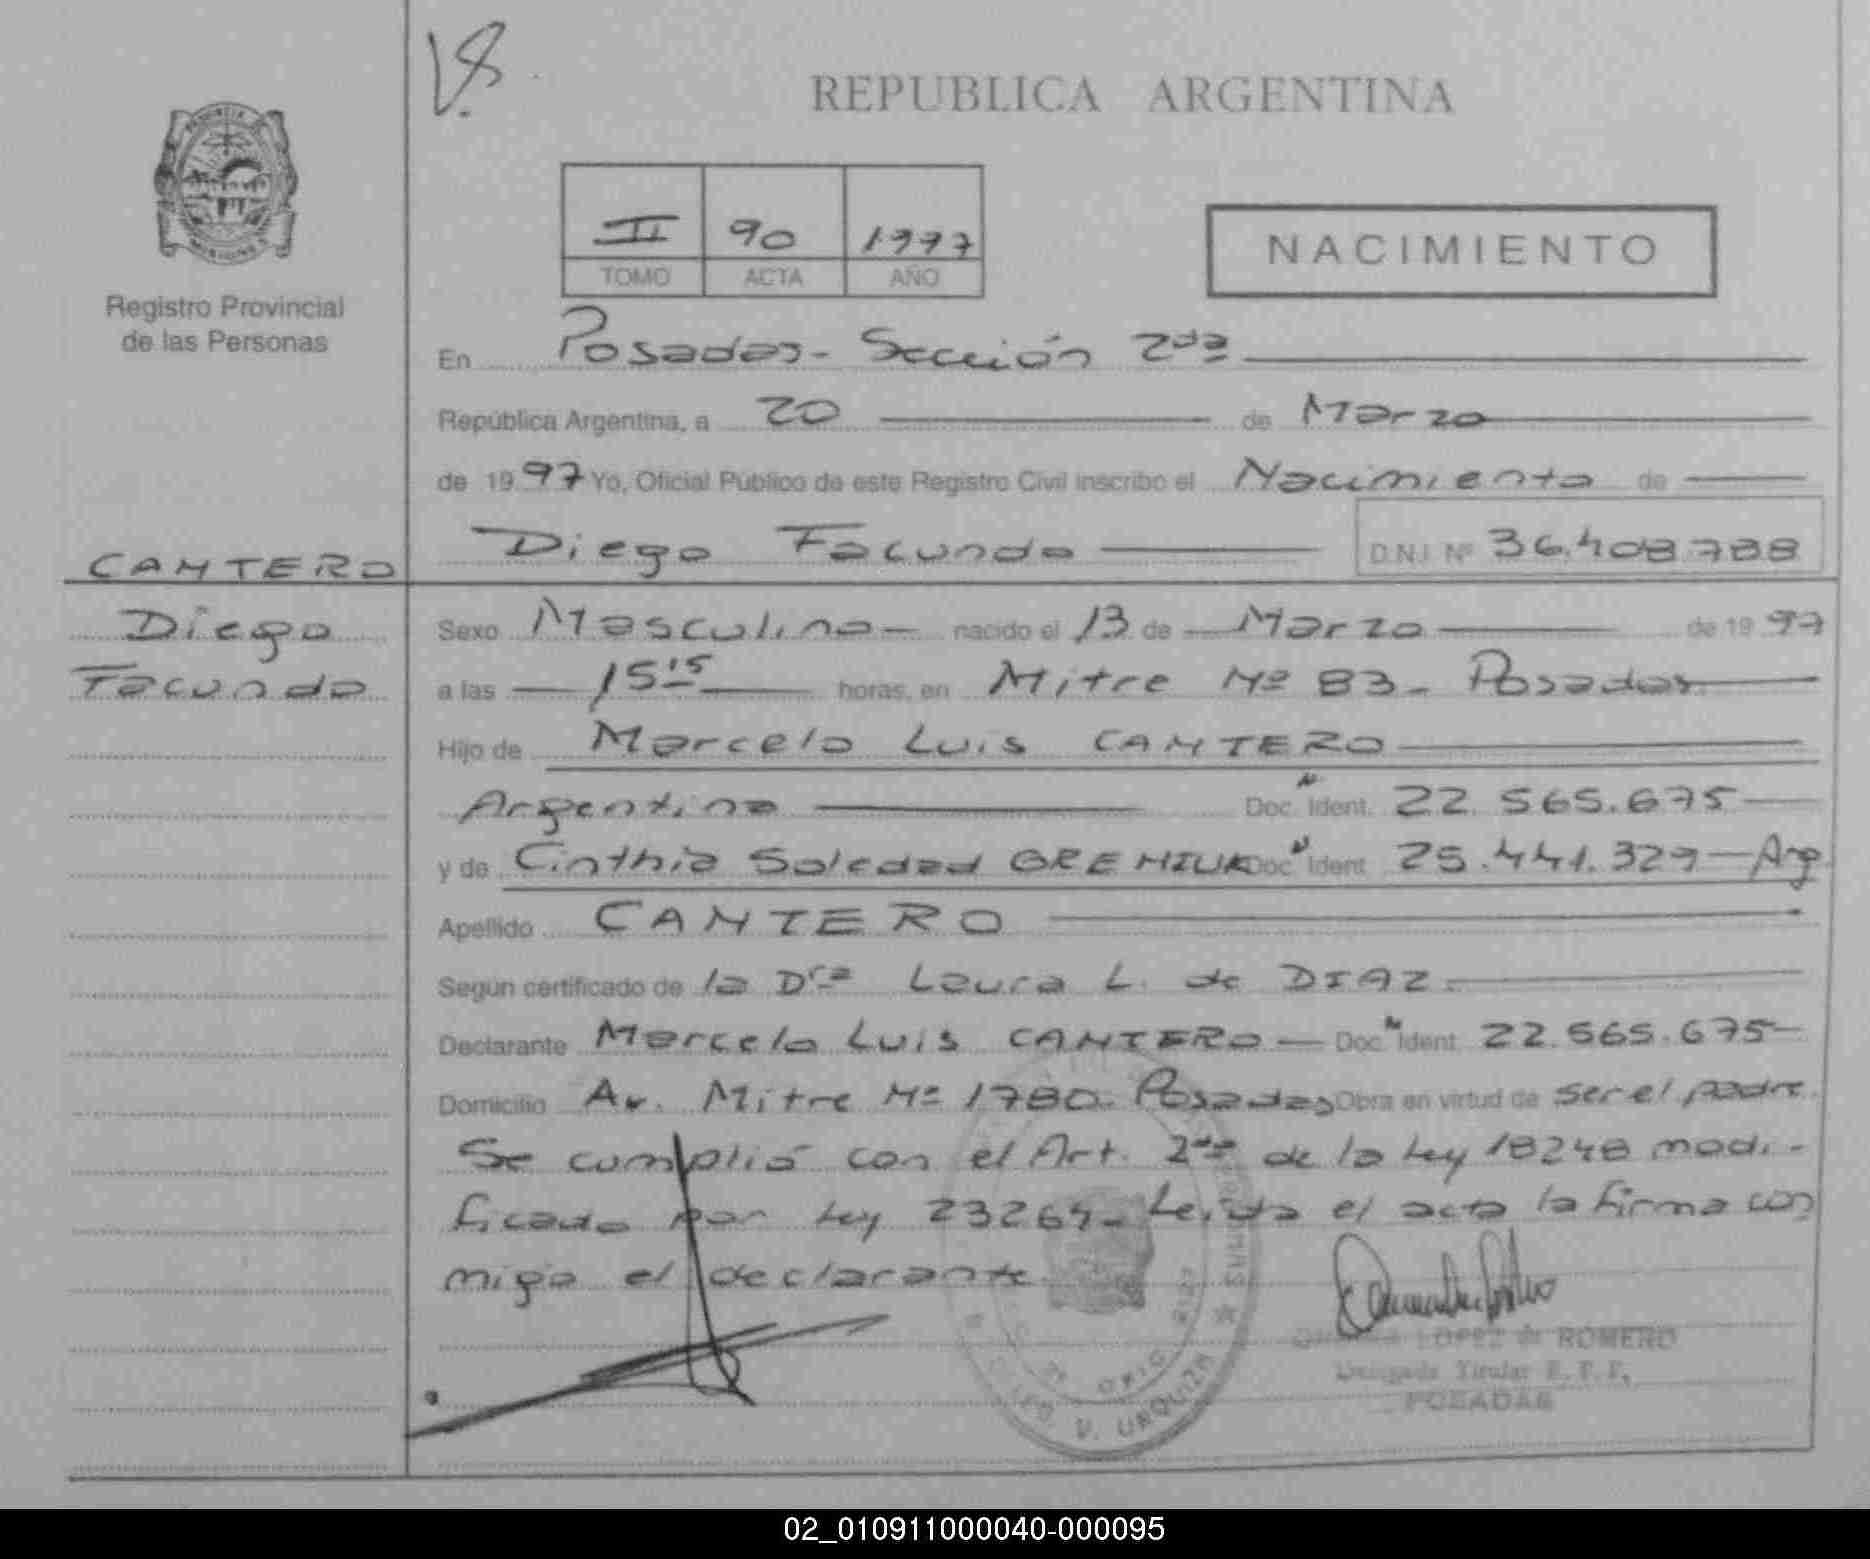 V.8.
REPUBLICA ARGENTINA
Registro Provincial
de las Personas
II 90 1997
TOMO ACTA AÑO
NACIMIENTO
En Posadas - Sección 2da
República Argentina, a 20 de Marzo
de 19 97 Yo, Oficial Público de este Registro Civil inscribo el Nacimiento de
Diego Facundo D.N.I. Nº 36.408.788
CANTERO
Diego
Facundo
Sexo Masculino nacido el 13 de Marzo de 19 97
a las 15 15 horas, en Mitre Nº 83 - Posadas
Hijo de Marcelo Luis CANTERO
Argentino Doc. Ident. 22.565.675
y de Cinthia Soledad GREMIUK Doc. Ident. 25.441.329 - Arg.
Apellido CANTERO
Según certificado de la Dra Laura L. de DIAZ
Declarante Marcelo Luis CANTERO - Doc. Ident. 22.565.675
Domicilio Av. Mitre Nº 1780 - Posadas Obra en virtud de ser el padre.
Se cumplió con el Art. 2do de la Ley 18248 modi-
ficado por Ley 23264 - Leída el acta la firma con
migo el declarante.
LOPEZ de ROMERO
Delegada Titular
POSADAS
V. URQUIZA
02_010911000040-000095